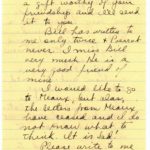 a gift worthy of your
friendship and I'll send
it to you.
Bill has written to
me only twice &
never. I miss Bill
very much. He is a
very good friend of
mine.
I would like to go
to Meaux, but alas,
the letters from Meaux
have ceased and I do
not know what to
think. It is sad!
Please write to me